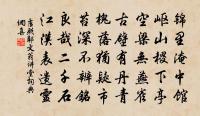 錦里淹中館
岷山稷下亭
空梁無燕雀
古壁有丹青
槐落猶疑市
苔深不辨銘
良哉二千石
江漢表遺靈
文翁講堂